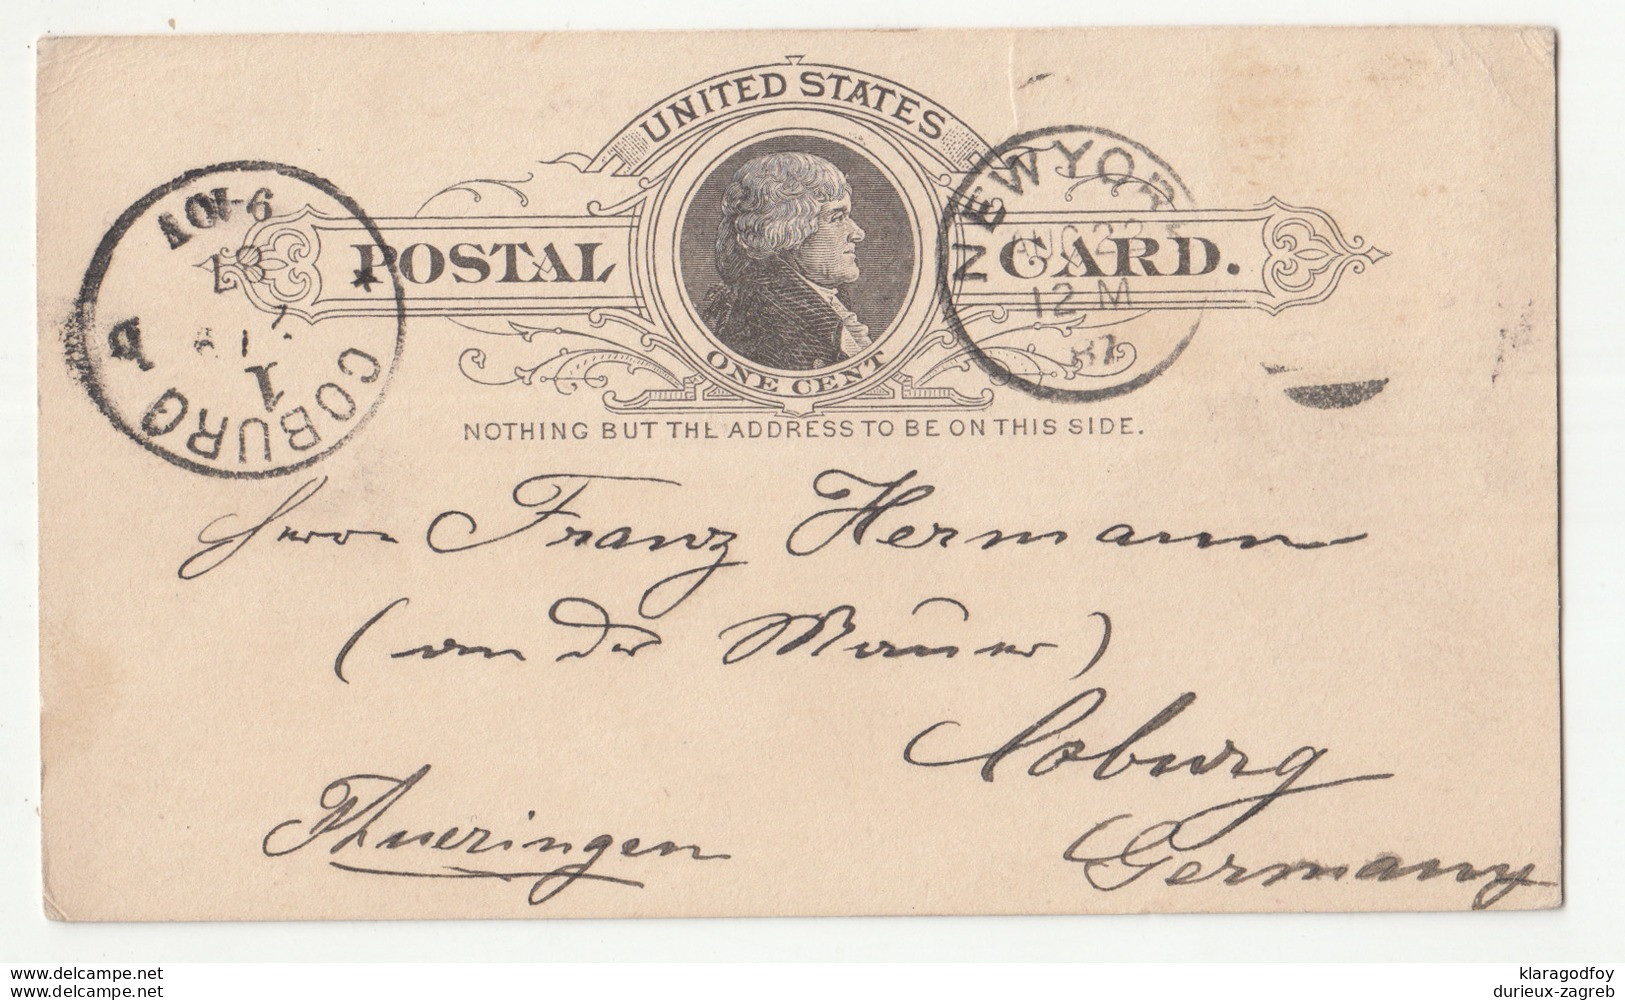 UNITED STATES
POSTAL CARD.
ONE CENT
NOTHING BUT THE ADDRESS TO BE ON THIS SIDE.
NEW YOR
AUG 22
12 M
87
COBURG
1
9-10V
Herrn Franz Hermann
(an der Mauer)
Coburg
Thueringen
Germany
www.delcampe.net
klaragodfoy
www.delcampe.net
durieux-zagreb